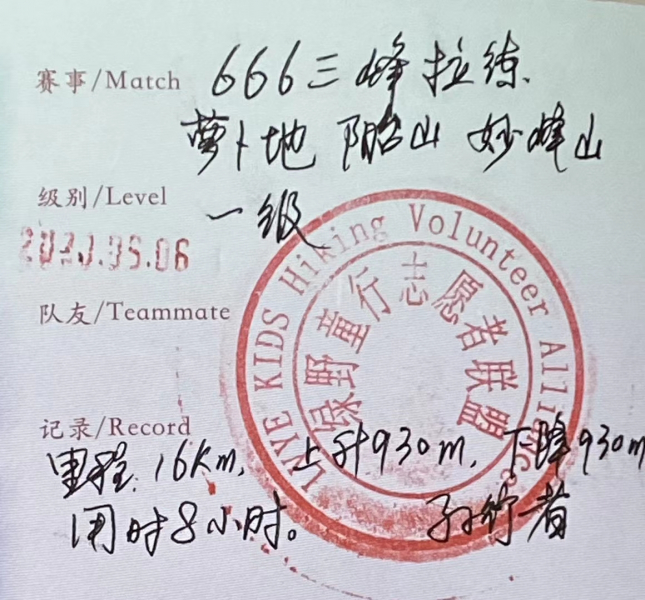 赛事/Match 666三峰拉练.
萝卜地 阳台山 妙峰山
级别/Level 一级
05.06
队友/Teammate
LVYE KIDS Hiking Volunteer Alliance
绿野童行志愿者联盟
记录/Record
里程:16Km, 上升930m, 下降930m
用时8小时。 孙行者